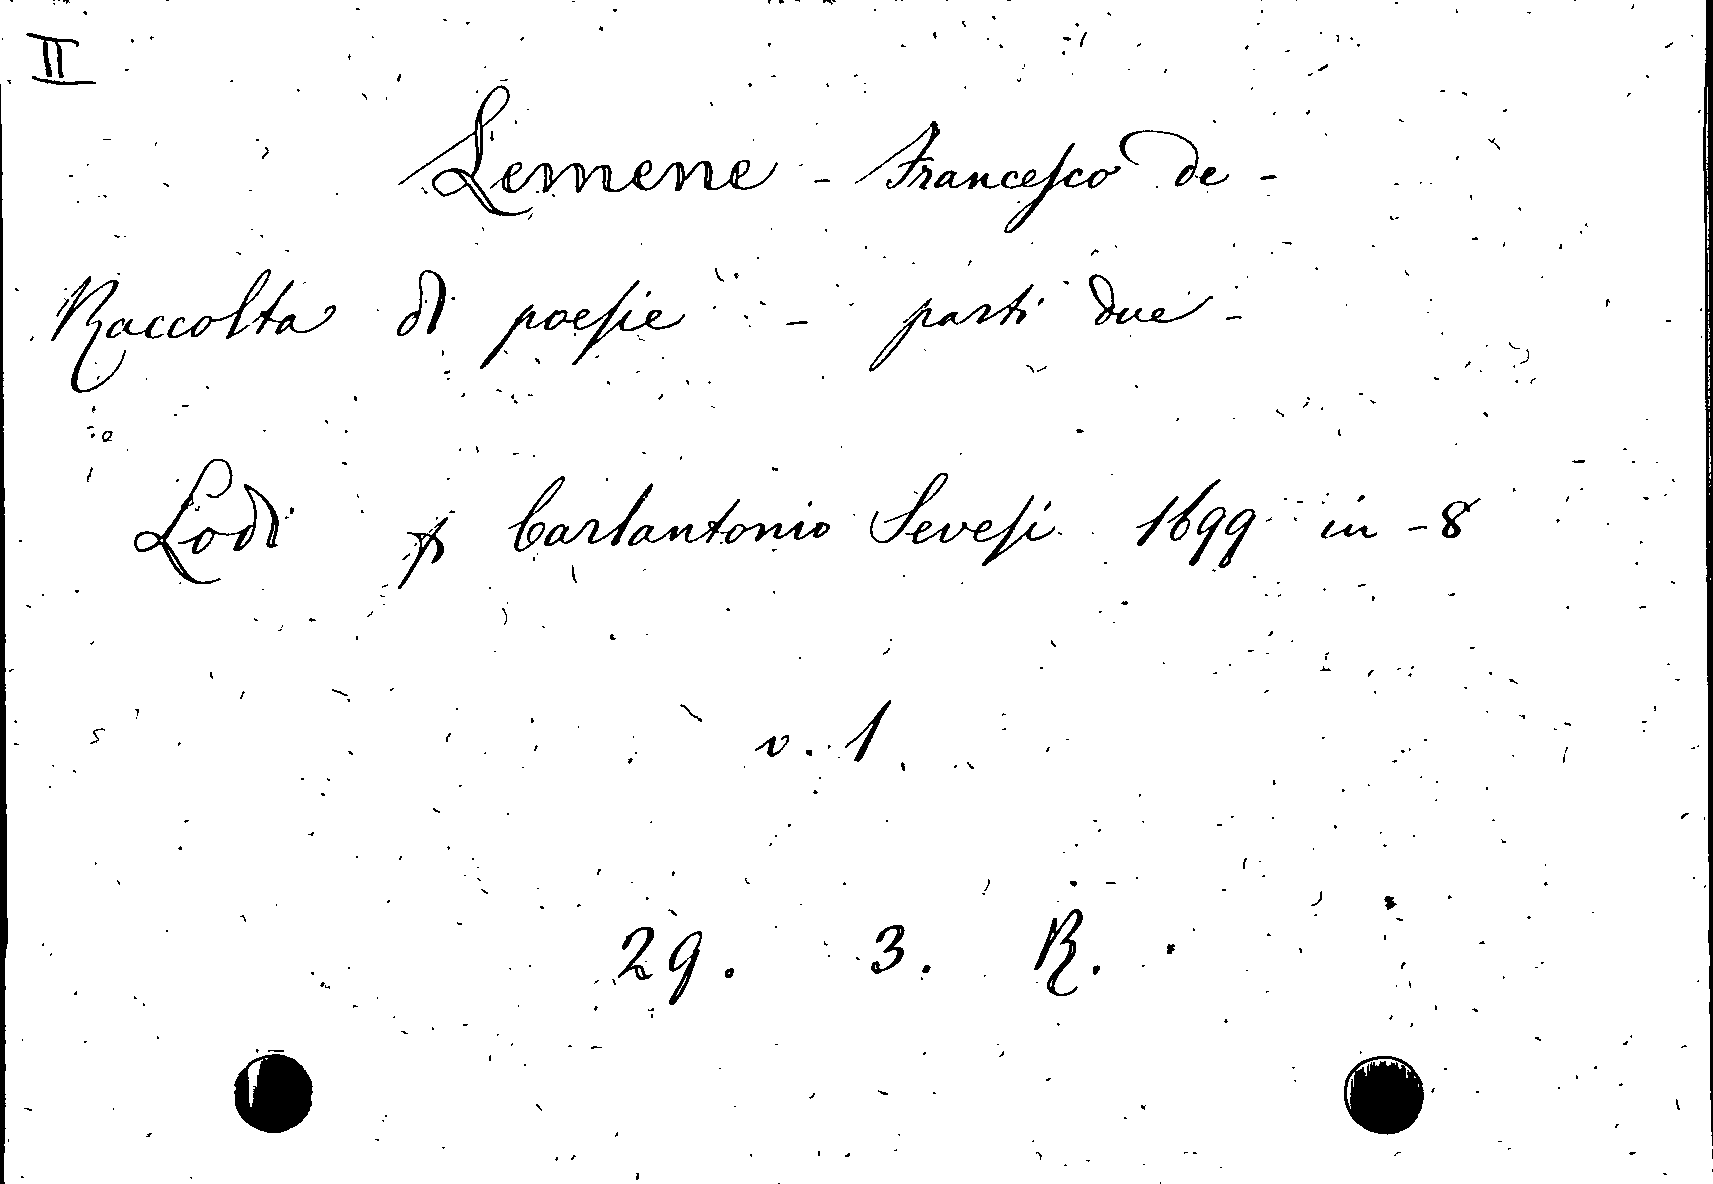 II
Lemene - Francesco de -
Raccolta di poesie - parti due -
Lodi p Carlantonio Sevesi 1699 in-8
v. 1
29. 3. R.